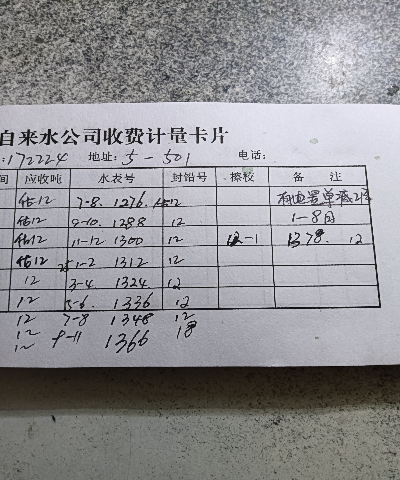 自来水公司收费计量卡片
:172224 地址: 5-501 电话:
间 应收吨 水表号 封铅号 擦校 备 注
估12 7-8. 1276. 12
估12 9-10. 1288 12 1-8月
估12 11-12 1300 12 12-1 1378. 12
估12 1-2 1312 12
12 3-4 1324 12
12 5-6. 1336 12
12 7-8 1348 12
12 9-11 1366 18
12